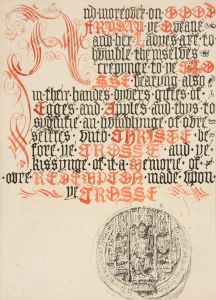 And moreover on GOOD
FRIDAY ye Queane
and her Ladyes are to
humble themselves
creepynge to ye CRO
SSE bearyng also
in their handes dyvers gyftes of
Egges and Apples and thus to
symbolie an humblynge of oure
selffes with CHRISTE be-
fore ye CROSSE and ye
kissynge of it a Memorie of
oure REDEMPTION made upon
ye CROSSE